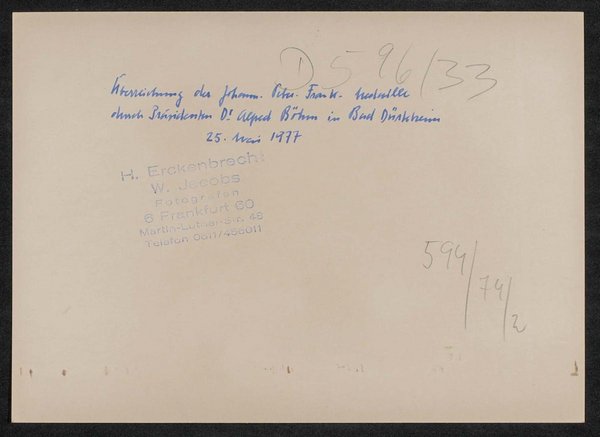 D 596/33
Überreichung der Johann-Peter-Frank-Medaille
durch Präsidenten Dr. Alfred Böhm in Bad Dürkheim
25. Mai 1977
H. Erckenbrecht
W. Jacobs
Fotografen
6 Frankfurt 60
Martin-Luther-Str. 48
Telefon 0611/456011
594/74/2